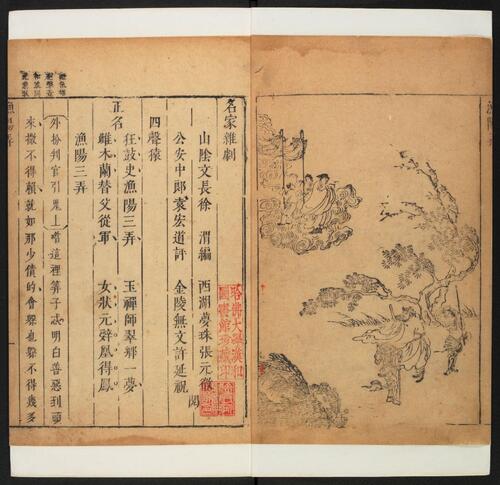 名家雜劇
山陰文長徐　渭編　西湖夢珠張元徵
公安中郎袁宏道評　金陵無文許延祝
閱
四聲猿
正名
狂鼓史漁陽三弄　玉禪師翠鄉一夢
雌木蘭替父從軍　女狀元辭凰得鳳
漁陽三弄
外扮判官引鬼上喒這裡筭子忒明白善惡到頭
來撒不得賴就如那少債的會躱也躱不得幾多
哈佛大學漢和
圖書館珍藏印